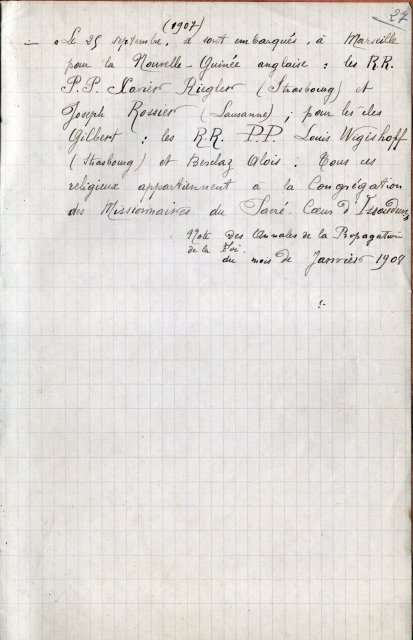 27
(1907)
— « Le 25 septembre, se sont embarqués, à Marseille
pour la Nouvelle-Guinée anglaise : les R.R.
P.P. Xavier Riegler (Strasbourg) et
Joseph Rossier (Lausanne) ; pour les îles
Gilbert : les R.R. P.P. Louis Wigishoff
(Strasbourg) et Besclaz Alois. Tous ces
religieux appartiennent à la Congrégation
des Missionnaires du Sacré-Cœur d'Issoudun »
Note des Annales de la Propagation
de la Foi.
du mois de Janvier 1907